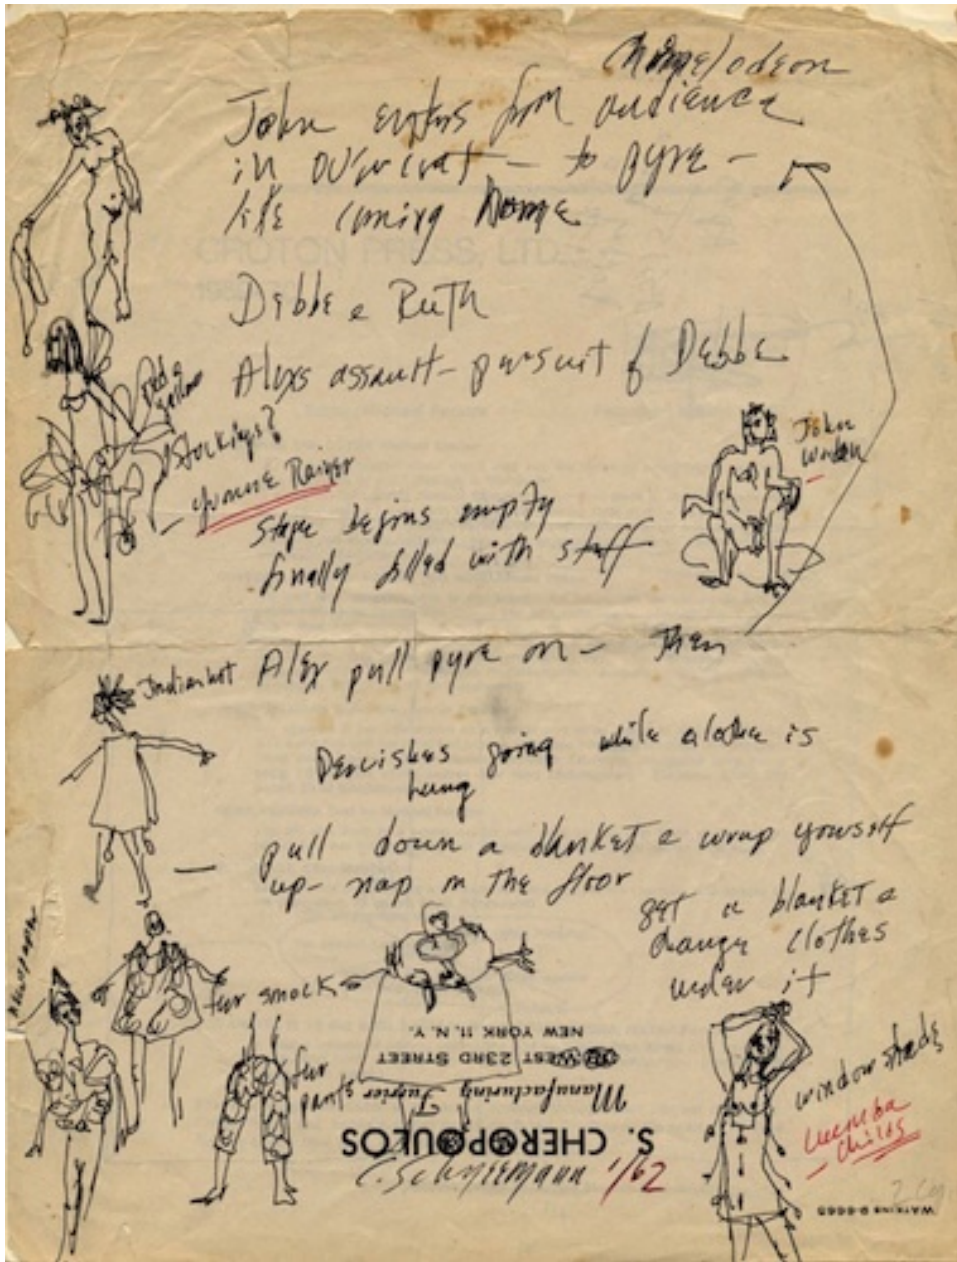 Chromelodeon
John enters from audience
in overcoat — to pyre —
like coming home
Debbe & Ruth
Alexs assault – pursuit of Debbe
Red &
yellow
stockings?
Yvonne Rainer
John
Worden
Stage begins empty
finally filled with stuff
Indian hat
Alex pull pyre on – then
Dervishes going while clothe is
hung
— pull down a blanket & wrap yourself
up – nap on the floor
get a blanket &
change clothes
under it
newspaper
fur smock
fur
pants
window shade
Lucinda
Childs
S. CHEROPOULOS
Manufacturing Furrier
WEST 23RD STREET
NEW YORK 11, N. Y.
WATKINS 9-6665
C. Schneemann 1/62
CROTON PRESS, LTD.